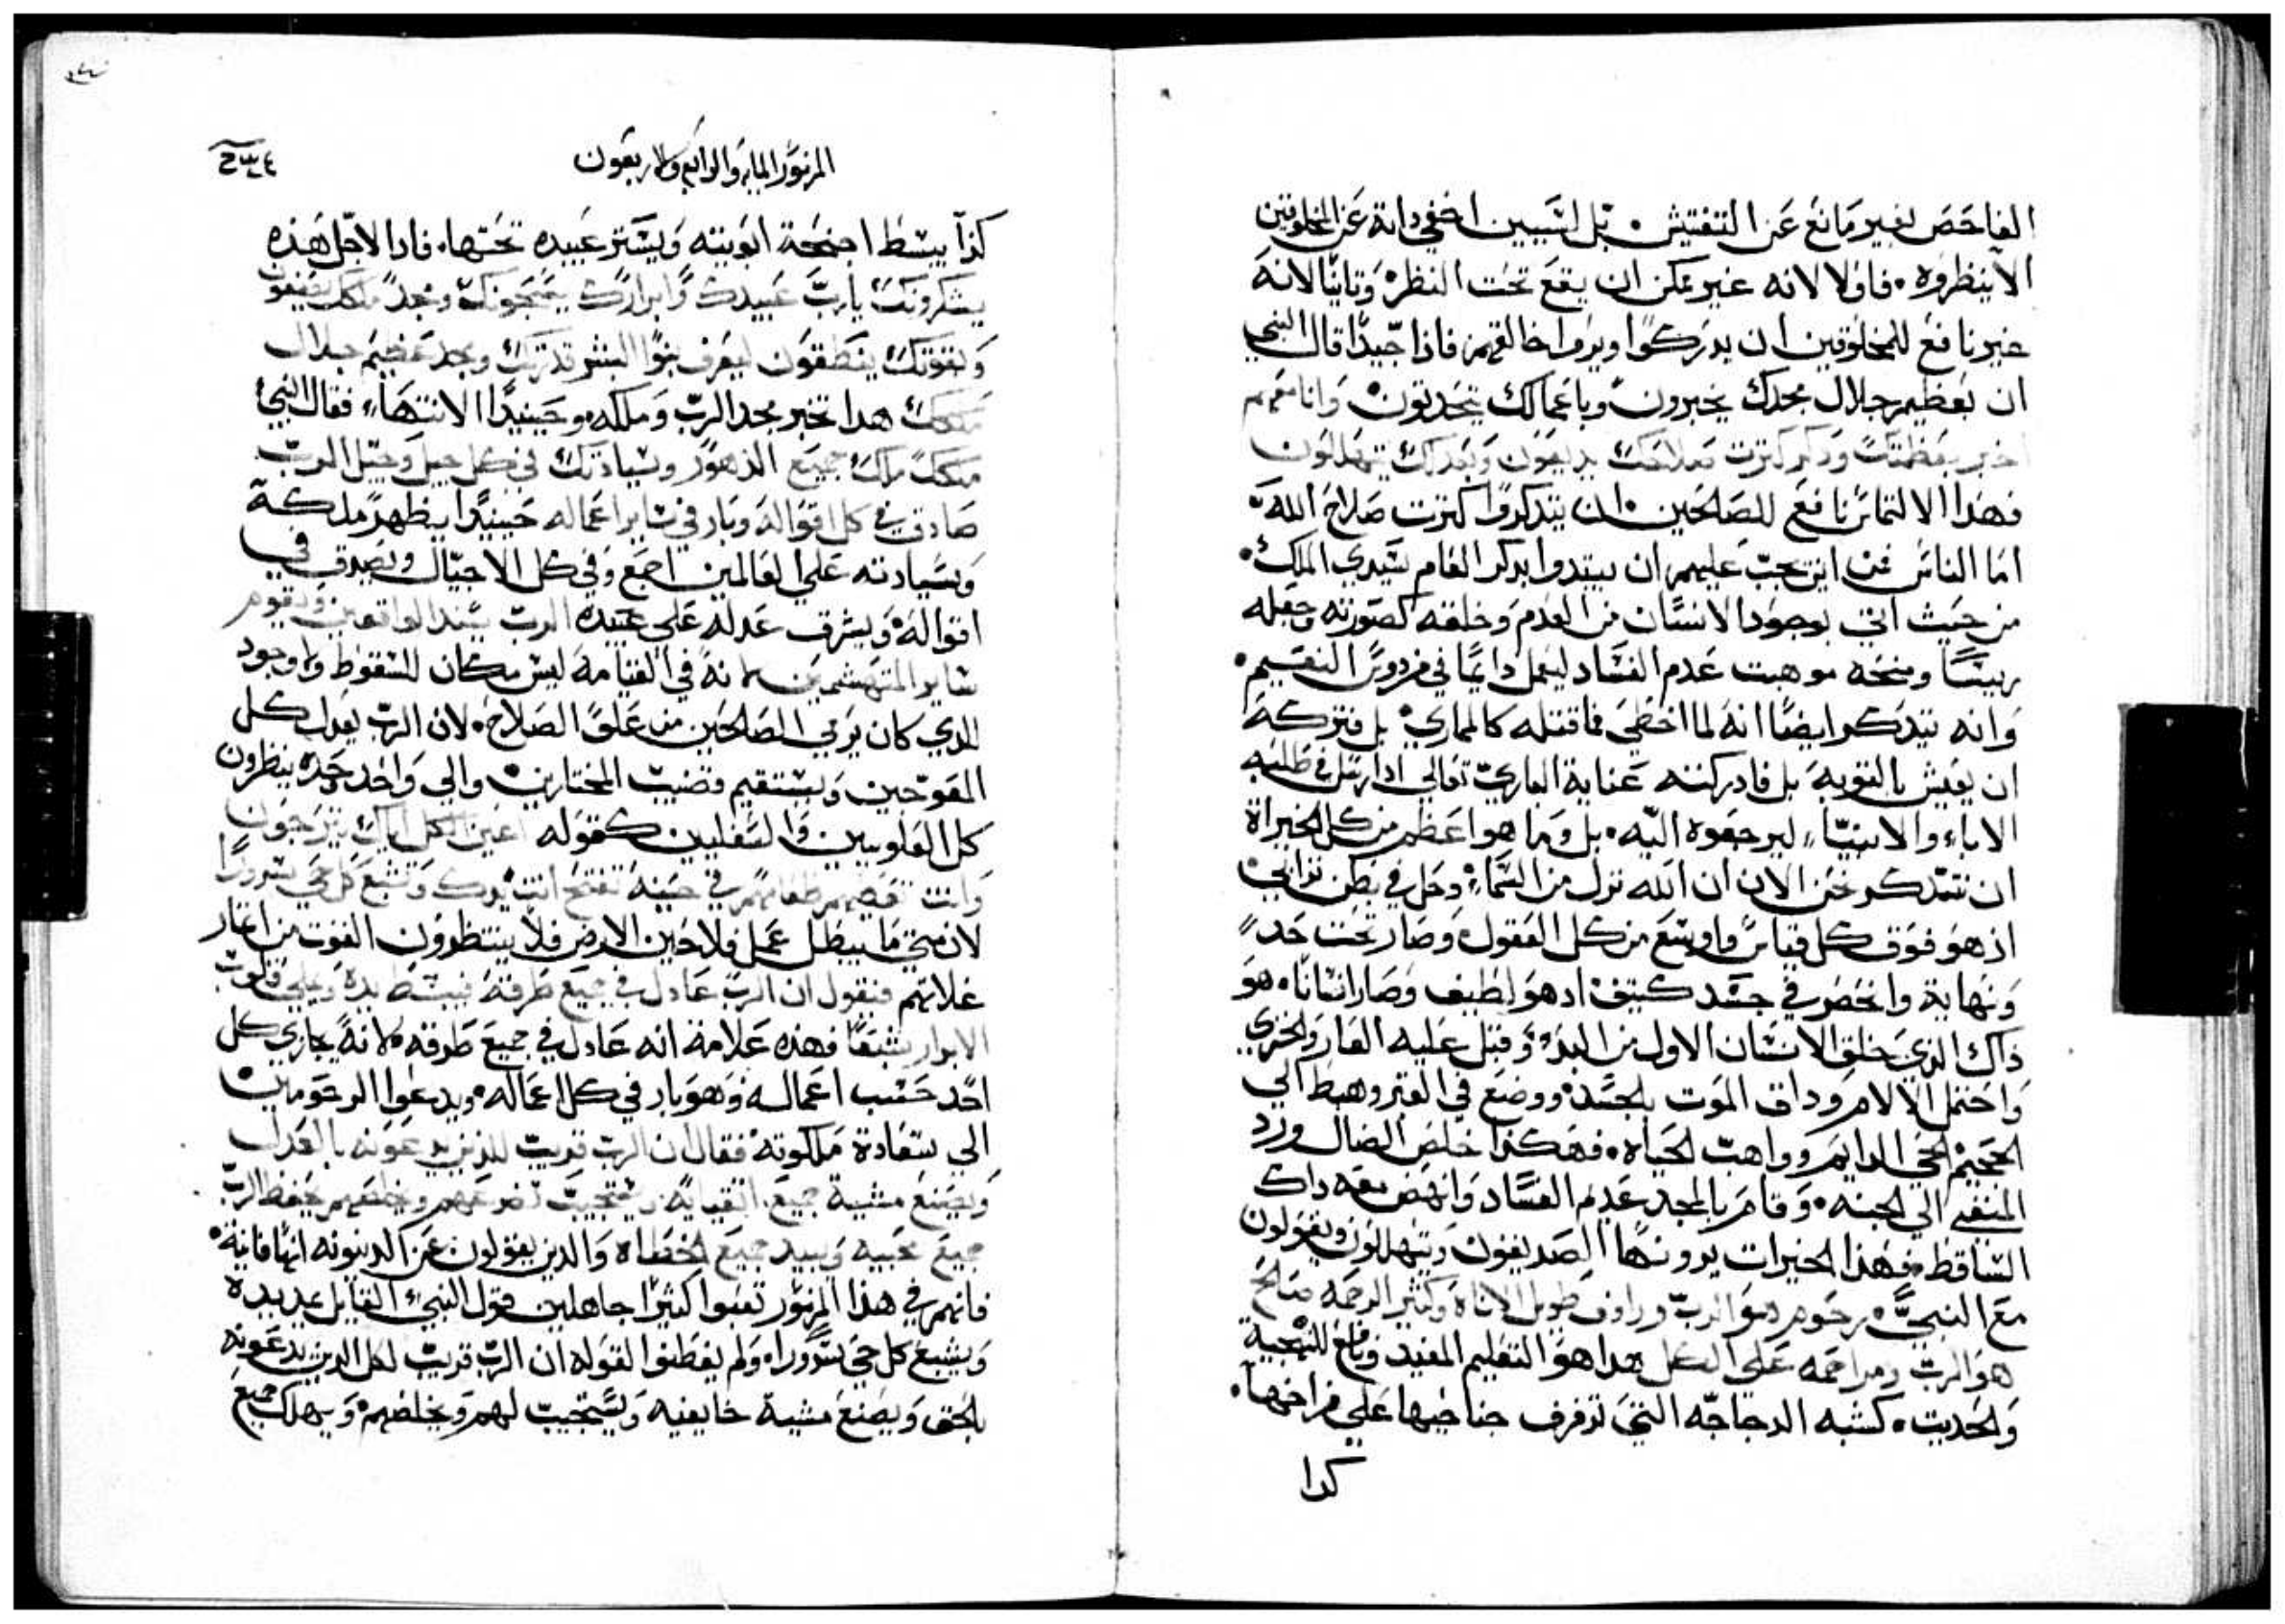 الفاحص بغير مانع عن التفتيش. بل لتبيين اخفي داته عن المخلوقين
الا ينظروه. فاولا لانه غير ممكن ان يقع تحت النظر وتانيا لانه
غير نافع للمخلوقين ان يدركوا ويروا خالقهم فاذا جيدا قال النبي
ان بعظيم جلال مجدك يخبرون وباعمالك يتحدتون وانا معهم
اخبر بعظمتك ودكر كترت صلاحك يديعون وبعدلك يتهللون
فهذا الالتماس نافع للصالحين ان يتدكروا كترت صلاح الله
اما الناس فمن اين يجب عليهم ان يبتدوا بدكر انعام سيدي الملك.
من حيث اتي بوجود الانسان من العدم وخلقه كصورته وجعله
ريسا ومنحه موهبت عدم الفساد ليعمل دايما في فردوس النعيم.
وانه نتدكر ايضا انه لما اخطي فما قتله كالماري بل فتركه
ان يعيش بالتوبه بل فادركته عناية الباري تعالي ادا رسل في طلبه
الاباء والانبياء ليرجعوه اليه. بل وما هو اعظم من كل الخيراة
ان نتدكر نحن الان ان الله نزل من السماء وحل في بطن ترابي
اذ هو فوق كل قياس واوسع من كل العقول وصار تحت حد
ونهاية وانحصر في جسد كتيف اد هو لطيف وصار انسانا. هو
ذاك الذي خلق الانسان الاول من البدء وقبل عليه العار والخزي
واحتمل الالام وداق الموت بالجسد ووضع في القبر وهبط الي
الجحيم الحي الدايم وواهب الحياه. فهكذا خلص الضال ورد
المنفي الي الجنه. وقام بالمجد عديم الفساد وانهض معه داك
الساقط فهذا الخيرات يرونها الصديقون ويتهللون ويقولون
مع النبي رحوم هو الرب ورووف طويل الاناة وكتير الرحمه صالح
هو الرب ومراحمه علي الكل هدا هو التعليم المفيد ونافع للتهجية
والحديت. كشبه الدجاجه التي ترفرف جناحيها علي فراخها.
كدا
المزمور المايه والرابع والاربعون
كذا يبسط اجنحة ابويته ويستر عبيده تحتها. فادا لاجل هذه
يشكرونك يا رب عبيدك وابرارك يمجدونك ومجد ملكك يصفون
وبقوتك ينطقون ليعرف بنوا البشر قدرتك ومجد عظيم جلال
ملكك هدا تخبر مجد الرب وملكه وحينيدا الانتهاء فقال النبي
ملكك ملك جميع الدهور وسيادتك في كل جيل وجيل الرب
صادق في كل اقواله وبار في ساير اعماله حينيدا يظهر ملكه
وسيادته علي العالمين اجمع وفي كل الاجيال ويصدق في
اقواله ويشرف عدله علي عبيده الرب يسند الواقعين ويقوم
ساير المتهشمين لانه في القيامه ليس مكان للسقوط ولا وجود
للدي كان يرمي الصالحين من علو الصلاح. لان الرب يعدل كل
المعوجين ويستقيم قضيب المختارين والي واحد وحده ينظرون
كل العلويين والسفليين كقوله اعين الكل اياك يترجون
وانت تعطيهم طعامهم في حينه تفتح انت يدك وتشبع كل حي سرورا
لان متي ما يبطل عمل فلاحين الارض فلا ينتظرون القوت من اتمار
غلاتهم فنقول ان الرب عادل في جميع طرقه فيبسط يده وعلي قلوب
الابرار شبعا فهذه علامة انه عادل في جميع طرقه لانه يجازي كل
احد حسب اعماله وهو بار في كل اعماله ويدعوا المرحومين
الي سعادة ملكوته فقال ان الرب قريب للذين يدعونه بالعدل
ويصنع مشية جميع اتقيايه ويستجيب تضرعهم ويخلصهم يحفظ الرب
جميع محبيه ويبيد جميع الخطاه والذين يقولون عن الدينونه انها فانية.
فانهم في هذا المزمور تعبوا كثيرا جاهلين قول النبي القايل بيديه
ويشبع كل حي سرورا. ولم يفطنوا لقوله ان الرب قريب لكل الدين يدعونه
بالحق ويصنع مشية خايفيه ويستجيب لهم ويخلصهم ويهلك جميع